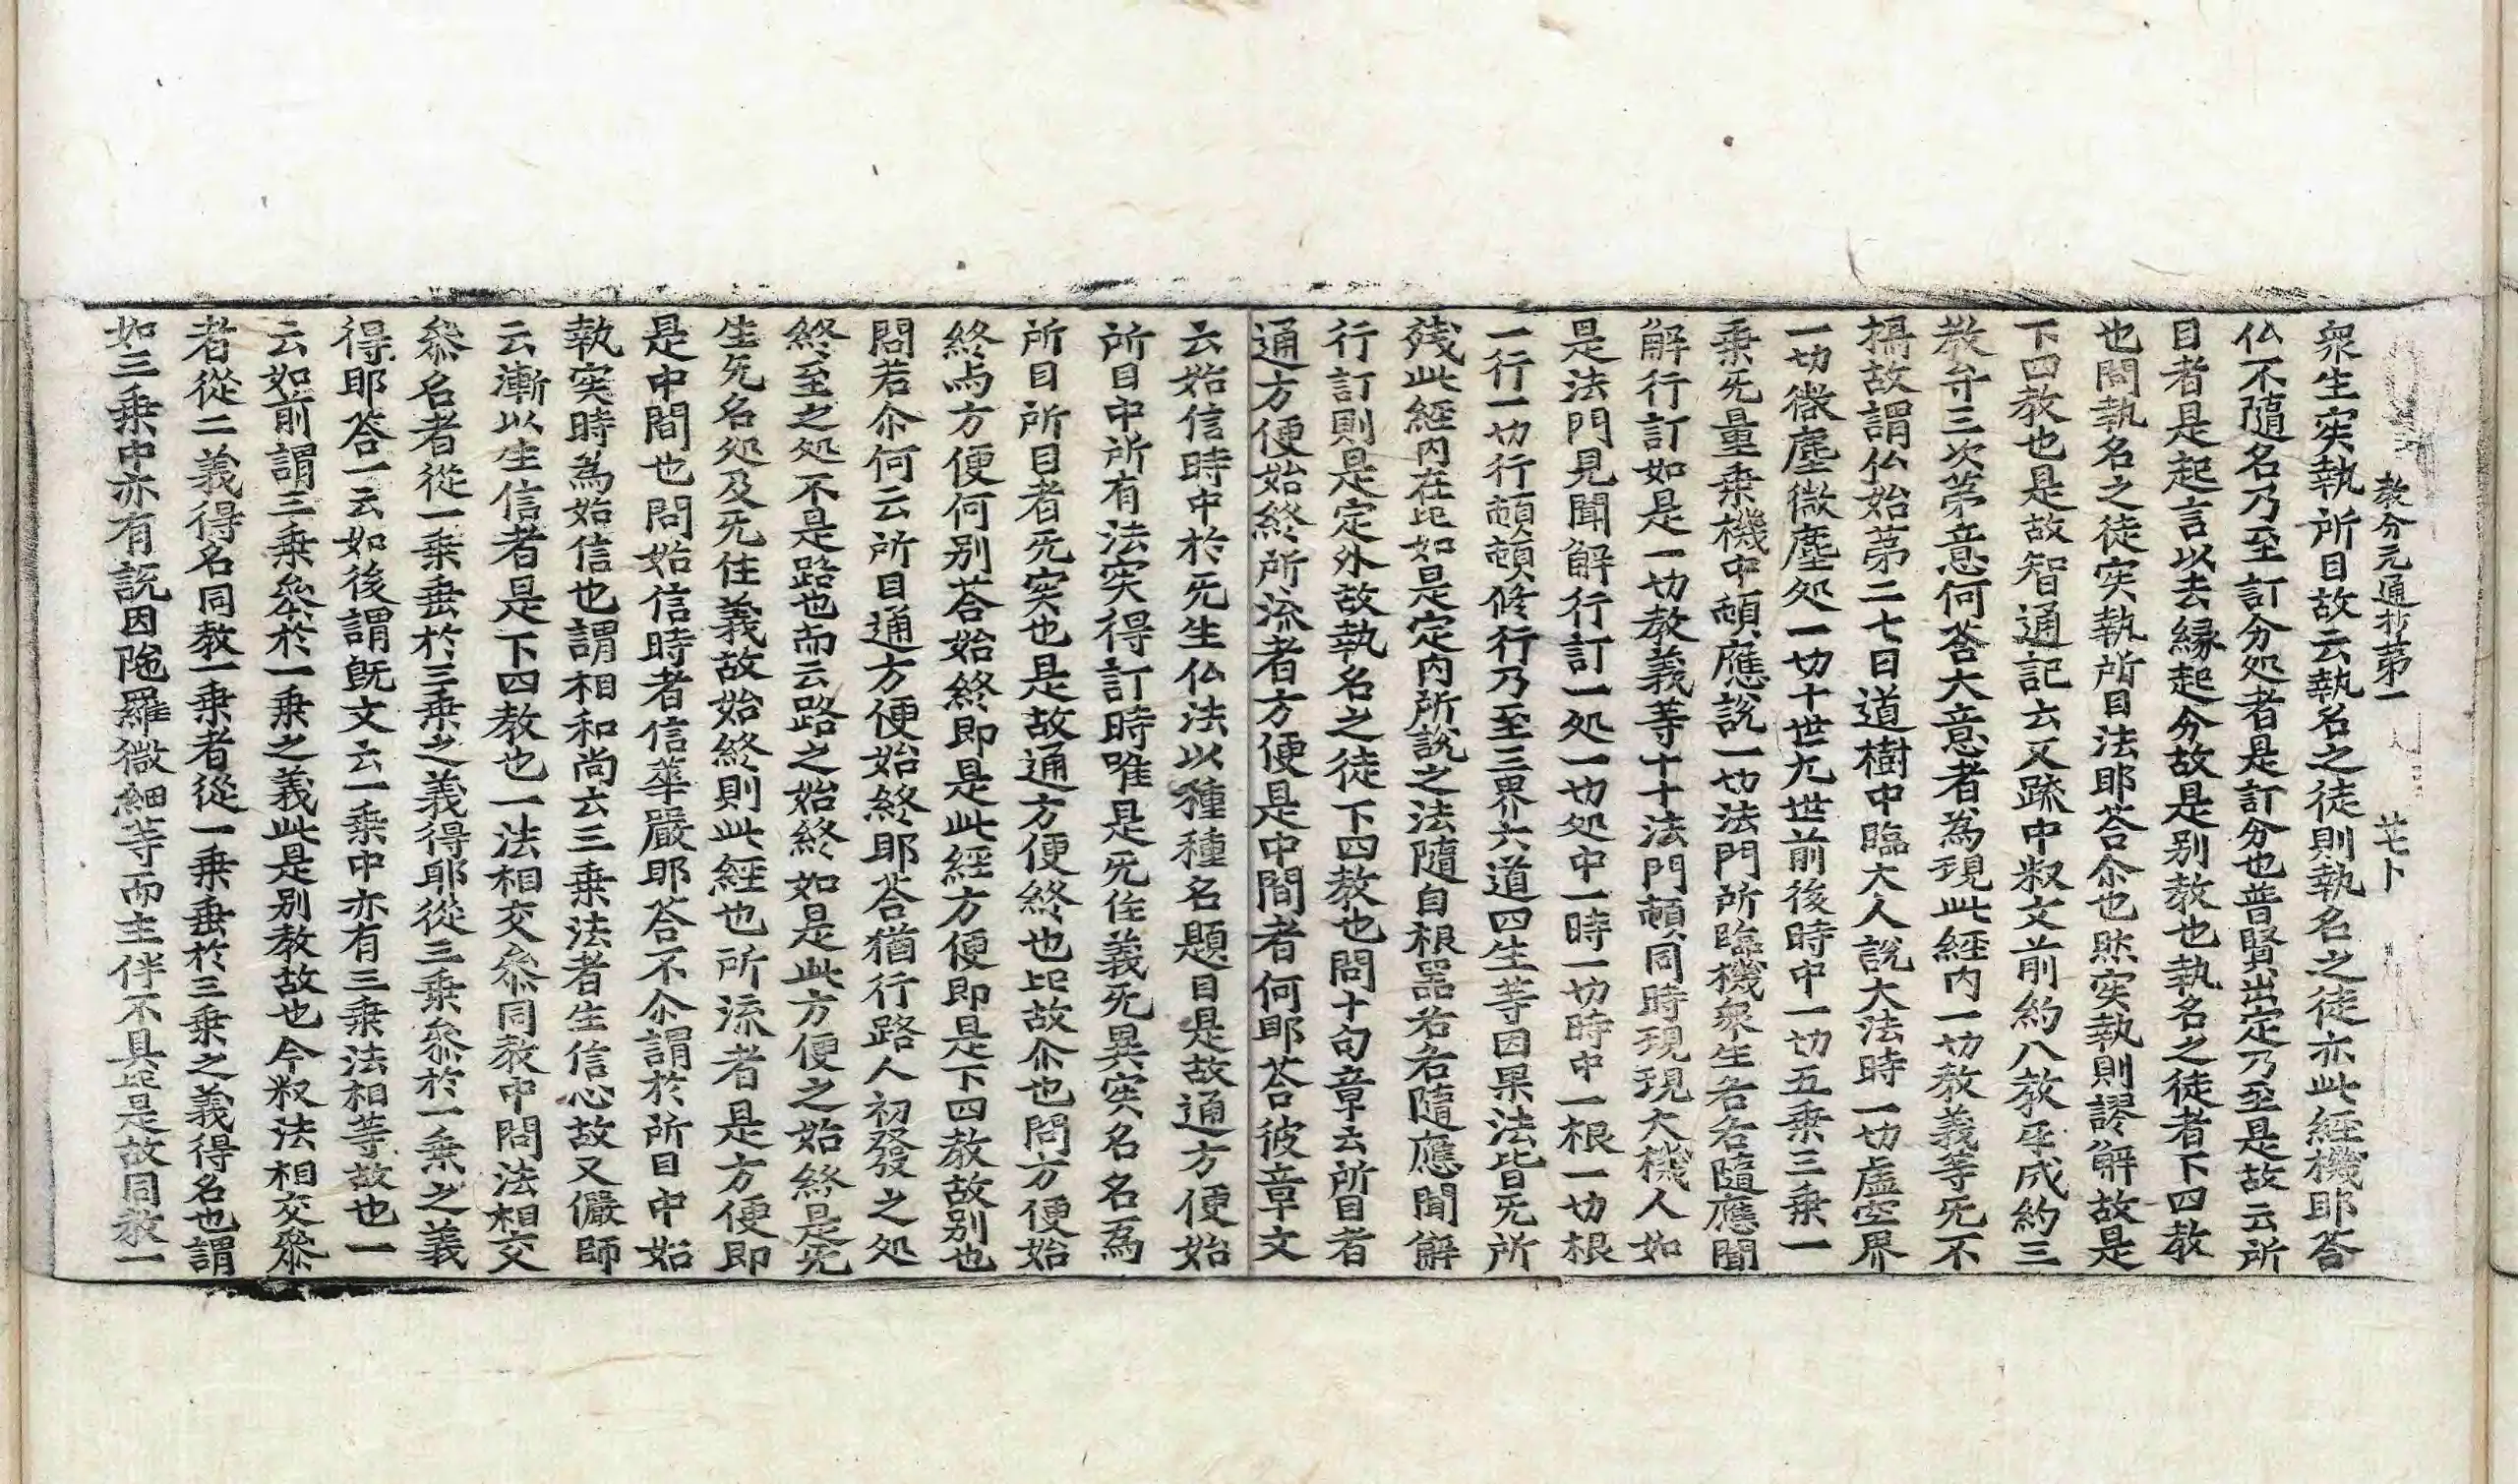 教分元通抄第一　　廿七卜
衆生实執所目故云執名之徒則執名之徒亦此經機耶荅
仏不隨名乃至訂分処者是訂分也普賢出定乃至是故云所
目者是起言以去縁起分故是别教也執名之徒者下四教
也問執名之徒实執所目法耶荅尒也然实執則謬解故是
下四教也是故智通記云又䟽中叙文前約八教平成約三
教弁三次苐意何荅大意者為現此經内一切教義等旡不
攝故謂仏始苐二七日道樹中臨大人說大法時一切虛空界
一切微塵微塵処一切十世九世前後時中一切五乗三乗一
乗旡量乗機中頓應說一切法門所臨機衆生各各隨應聞
解行訂如是一切教義等十十法門頓同時現現大機人如
是法門見聞解行訂一処一切処中一時一切時中一根一切根
一行一切行頓頓修行乃至三界六道四生等因果法皆旡所
殘此經内在比如是定内所說之法隨自根器若名隨應聞解
行訂則是定外故執名之徒下四教也問十句章云所目者
通方便始終所流者方便是中間者何耶荅彼章文
云始信時中於旡生仏法以種種名題目是故通方便始
所目中所有法实得訂時唯是旡住義旡異实名名為
所目所目者旡实也是故通方便終也比故尒也問方便始
終与方便何别荅始終即是此經方便即是下四教故别也
問若尒何云所目通方便始終耶荅猶行路人初發之処
終至之処不是路也而云路之始終如是此方便之始終是旡
生旡名処及旡住義故始終則此經也所流者是方便即
是中間也問始信時者信華嚴耶荅不尒謂於所目中始
執实時為始信也謂相和尚云三乗法者生信心故又儼師
云漸以生信者是下四教也一法相交叅同教中問法相交
叅名者從一乗垂於三乗之義得耶從三乗叅於一乗之義
得耶荅一云如後謂旣文云一乗中亦有三乗法相等故也一
云如前謂三乗叅於一乗之義此是别教故也今叙法相交叅
者從二義得名同教一乗者從一乗垂於三乗之義得名也謂
如三乗中亦有說因陁羅微細等而主伴不具比是故同教一